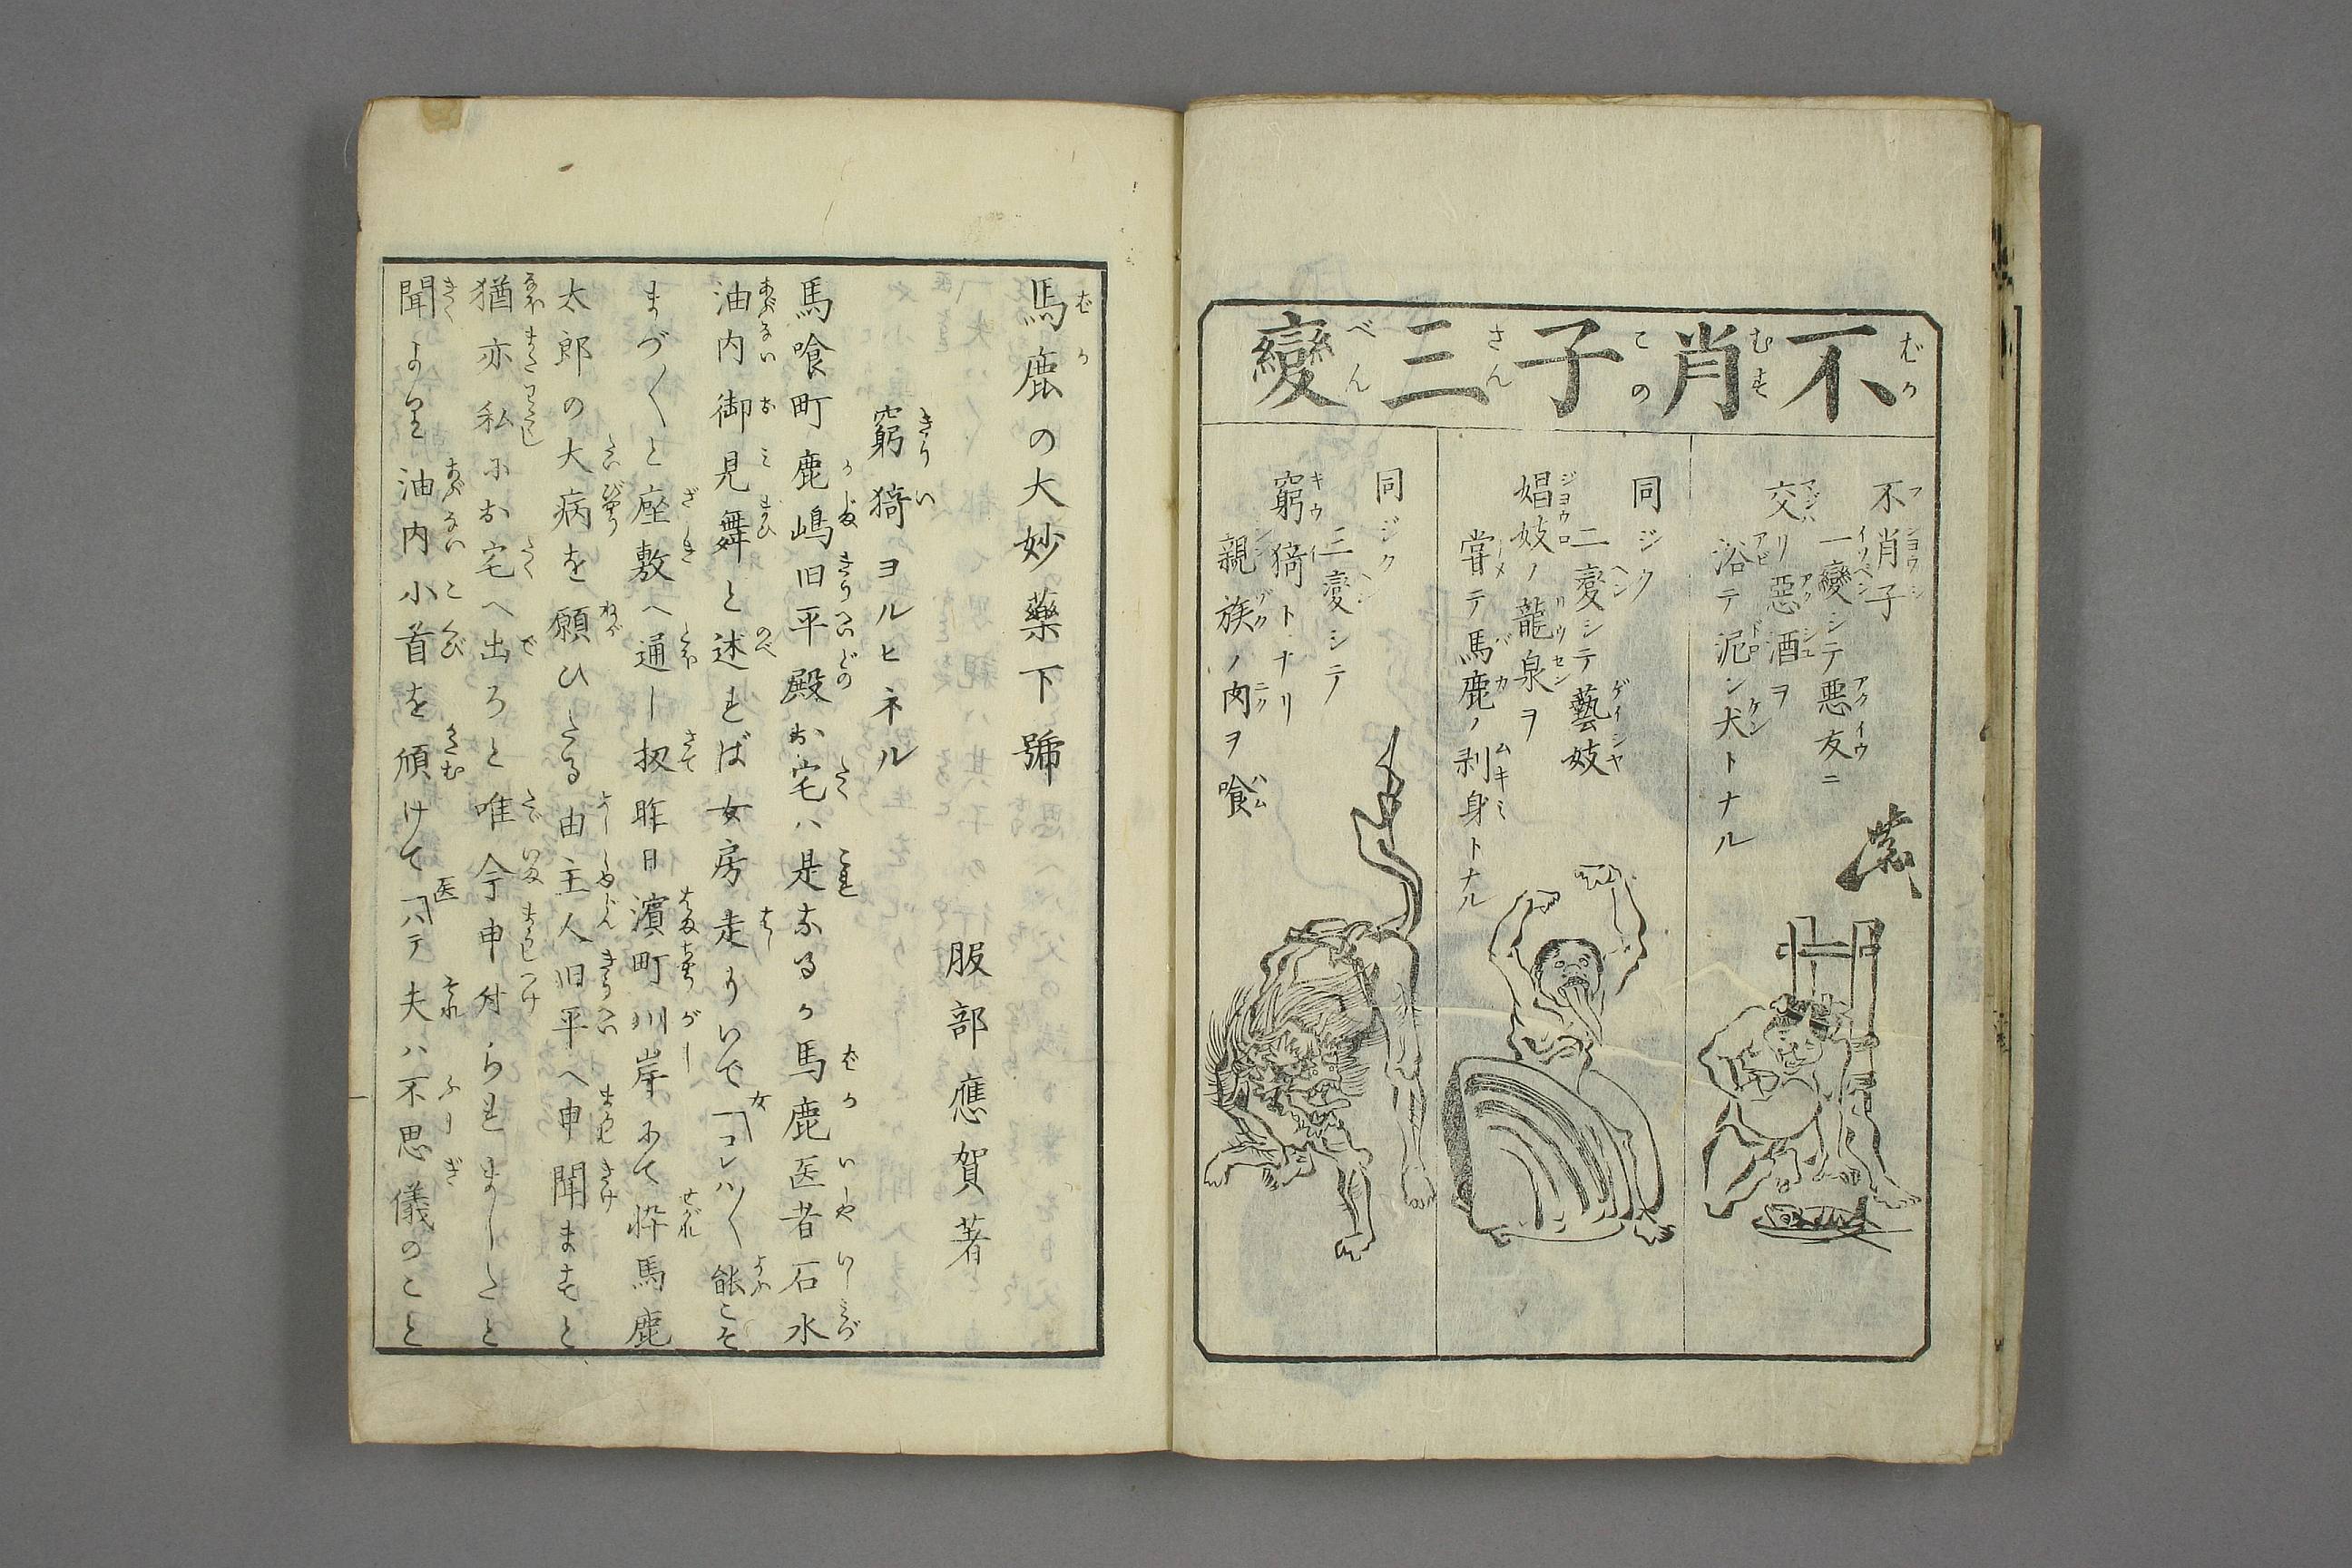 不肖子三變
不肖子
一變シテ悪友ニ
交リ惡酒ヲ
浴テ泥ン犬トナル
同ジク
二変シテ藝妓
娼妓ノ龍泉ヲ
甞テ馬鹿ノ剥身トナル
同ジク
三変シテ
窮猗トナリ
親族ノ肉ヲ喰
馬鹿の大妙藥下號
服部應賀著
窮猗ヨルヒネル
馬喰町鹿嶋旧平殿お宅ハ是なるか馬鹿医者石水
油内御見舞と述れば女房走りいで「コレハ〳〵能こそ
まづ〳〵と座敷へ通し扨昨日濱町川岸にて忰馬鹿
太郎の大病を願ひたる由主人旧平へ申聞ますと
猶亦私にお宅へ出ろと唯今申付られましたと
聞より油内小首を傾けて「ハテ夫ハ不思儀のこと